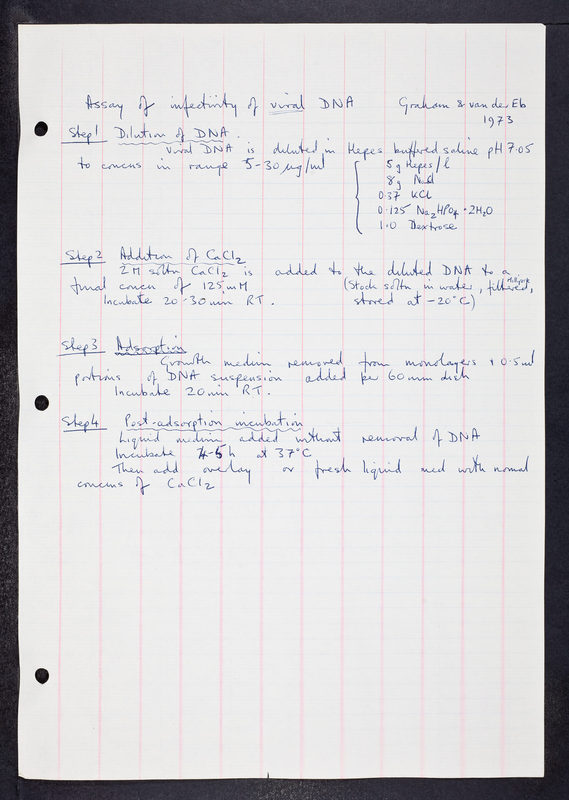 Assay of infectivity of viral DNA Graham & van der Eb
1973
Step 1 Dilution of DNA.
Viral DNA is diluted in Hepes buffered saline pH 7.05
to concns in range 5-30 µg/ml
5g Hepes/l
8g NaCl
0.37 KCl
0.125 Na2HPO4 · 2H2O
1.0 Dextrose
Step 2 Addition of CaCl2
2M soltn CaCl2 is added to the diluted DNA to a
final concn of 125 mM (Stock soltn, in water, Millipore filtered,
Incubate 20-30 min RT. stored at -20°C)
Step 3 Adsorption
Growth medium removed from monolayers & 0.5 ml
portions of DNA suspension added per 60 mm dish
Incubate 20 min RT.
Step 4 Post-adsorption incubation
Liquid medium added without removal of DNA
Incubate 4-5 h at 37°C
Then add overlay or fresh liquid med with normal
concns of CaCl2